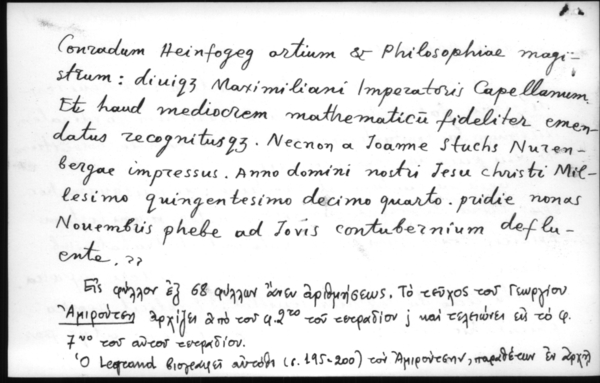 Conradum Heinfogeg artium & Philosophiae magi-
strum: diuiqз Maximiliani Imperatoris Capellanum.
Et haud mediocrem mathematicū fideliter emen-
datus recognitusqз. Necnon a Joanne Stuchs Nuren-
bergae impressus. Anno domini nostri Jesu christi Mil-
lesimo quingentesimo decimo quarto. pridie nonas
Nouembris phebe ad Jovis contubernium deflu-
ente. ??
Εἰς φύλλον ἐξ 68 φύλλων ἄνευ ἀριθμήσεως. Τὸ τεῦχος τοῦ Γεωργίου
Ἀμιρούτση ἀρχίζει ἀπὸ τοῦ φ. 2ου τοῦ τετραδίου j καὶ τελειώνει εἰς τὸ φ.
7νο τοῦ αὐτοῦ τετραδίου.
Ὁ Legrand βιογραφεῖ αὐτόθι (σ. 195-200) τὸν Ἀμιρούτσην, παραθέτων ἐν ἀρχῇ